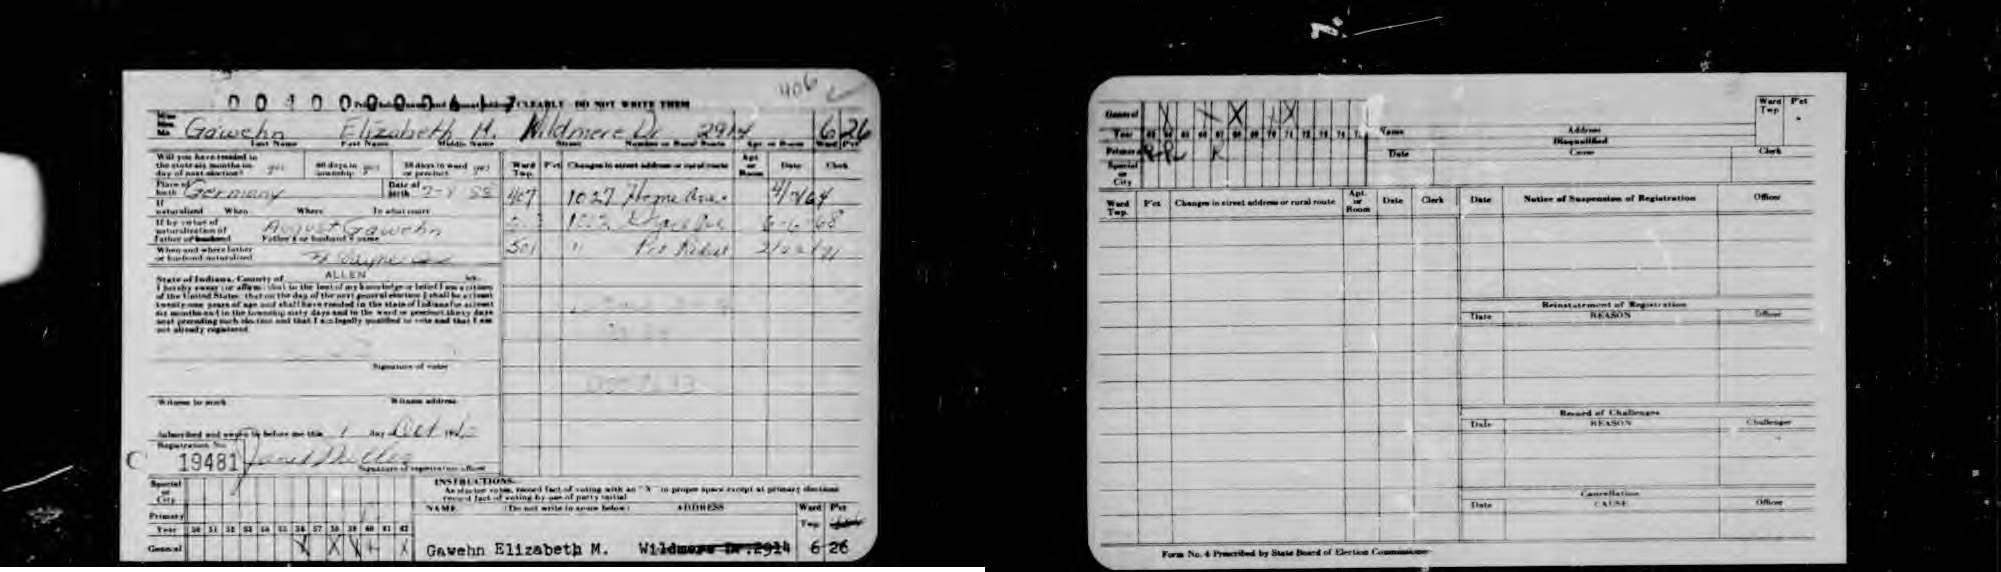 406
0 0 4 0 0 0 0 0 6 1 7 CLEARLY DO NOT WRITE THEM
Miss
Mrs.
Mr. Gawehn Elizabeth M. Wildmere Dr 2914 6 26
Last Name First Name Middle Name Street Number or Rural Route Apt. or Room Ward Pct
Will you have resided in the state six months on day of next election? yes 60 days in township yes 30 days in ward or precinct yes
Place of birth Germany Date of birth
If naturalized When Where In what court
If by virtue of naturalization of Father or husband August Gawehn
Father's or husband's name
When and where father or husband naturalized Ft Wayne
State of Indiana, County of ALLEN ss:
I hereby swear (or affirm) that to the best of my knowledge or belief I am a citizen
of the United States; that on the day of the next general election I shall be at least
twenty-one years of age and shall have resided in the state of Indiana for at least
six months and in the township sixty days and in the ward or precinct thirty days
next preceding such election and that I am legally qualified to vote and that I am
not already registered.
Signature of voter
Witness to mark Witness address
Subscribed and sworn to before me this 1 day Oct
Registration No.
C 19481
Signature of registration officer
Ward Twp. P'ct Changes in street address or rural route Apt. or Room Date Clerk
407 1027 Home Ave. 4/7/64
68
501 " 2/22/71
INSTRUCTIONS
As elector votes, record fact of voting with an "X" in proper space except at primary elections
record fact of voting by use of party initial
Special or City
Primary
Year 50 51 52 53 54 55 56 57 58 59 60 61 62
General X X X X X
NAME (Do not write in space below) ADDRESS Ward Twp. Pct
Gawehn Elizabeth M. Wildmere Dr. 2914 6 26
General X X X X X
Year 63 64 65 66 67 68 69 70 71 72 73 74
Primary R R R
Special or City
Name Address Ward Twp P'ct
Disqualified
Date Cause Clerk
Ward Twp. P'ct Changes in street address or rural route Apt. or Room Date Clerk
Date Notice of Suspension of Registration Officer
Reinstatement of Registration
Date REASON Officer
Record of Challenges
Date REASON Challenger
Cancellation
Date CAUSE Officer
Form No. 4 Prescribed by State Board of Election Commissioners